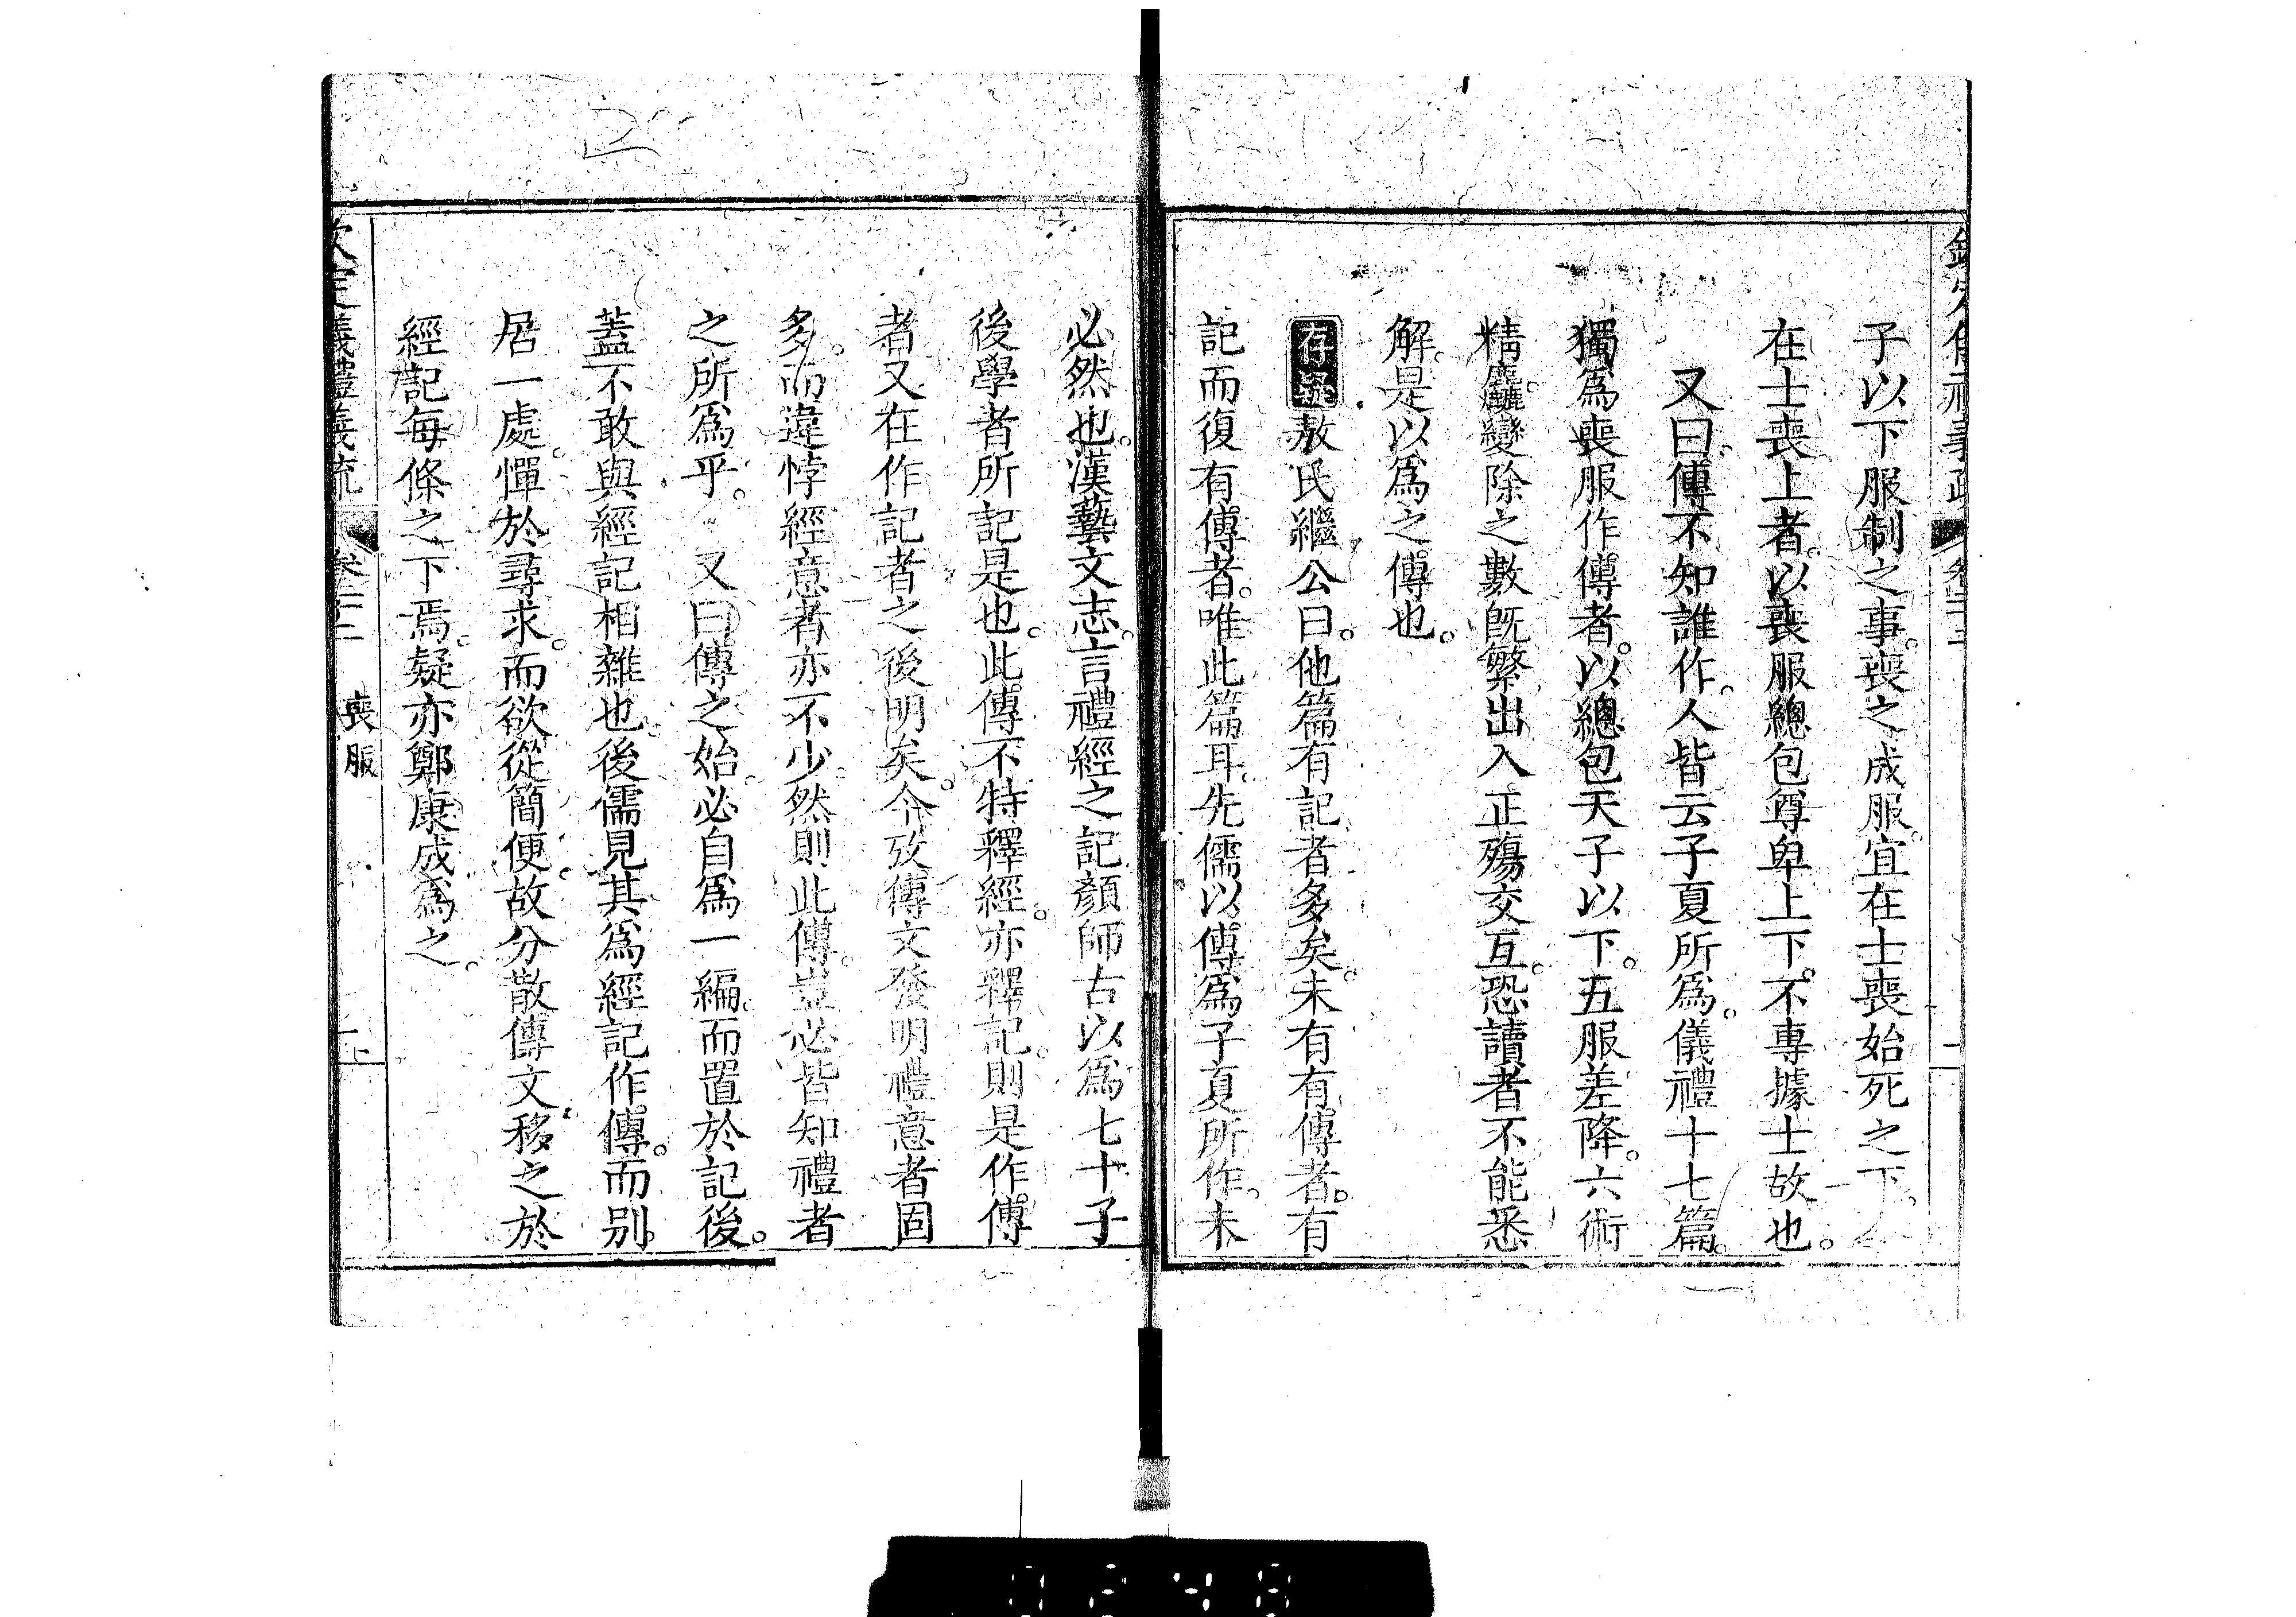 子以下服制之事。喪之成服。宜在士喪始死之下。
在士喪上者。以喪服總包尊卑上下。不專據士故也。
又曰。傳不知誰作。人皆云子夏所爲。儀禮十七篇。
獨爲喪服作傳者。以總包天子以下。五服差降。六術
精麤。變除之數既繁。出入正殤交互。恐讀者不能悉
解。是以爲之傳也。
存疑敖氏繼公曰。他篇有記者多矣。未有有傳者。有
記而復有傳者。唯此篇耳。先儒以傳爲子夏所作。未
必然也。漢藝文志。言禮經之記顏師古以爲七十子
後學者所記是也。此傳不特釋經。亦釋記。則是作傳
者又在作記者之後明矣。今攷傳文發明禮意者固
多。而違悖經意者亦不少。然則此傳。豈必皆知禮者
之所爲乎。又曰傳之始。必自爲一編。而置於記後。
蓋不敢與經記相雜也。後儒見其爲經記作傳。而别
居一處。憚於尋求。而欲從簡便。故分散傳文。移之於
經記每條之下焉。疑亦鄭康成爲之。
欽定儀禮義疏
喪服